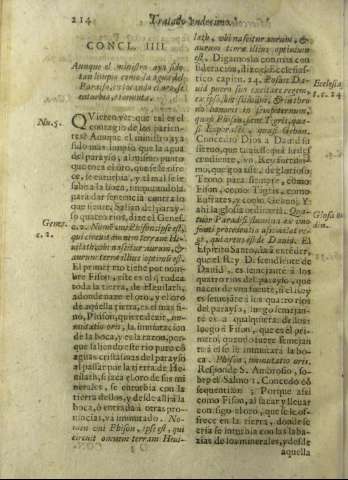 214
Tratado undecimo.
CONCL. IIII.
Aunque el ministro aya sido
tan limpio como la agua del
Paraíso, en tocando el oro se
enturbia, o se inmuta.
Nu.5.
Quieren ver que tal es el
contagio de los parien-
tes? Aunque el ministro aya
sido mas limpio que la agua
del parayso, al mismo punto
que toca el oro, que se le ofre-
ce, se enturbia, y al mal se le
saba la boca, inquinandola
para dar sentencia contra lo
que siente. Salian del paray-
so quatro rios, dize el Genes.
Genes.
c. 2.
c. 2. Nomẽ uni Phison: ipse est,
qui circuit omnem terram He-
uilath, ubi nascitur aurum, &
aurum terræ illius optimũ est.
El primero tiene por nom-
bre Fison, este es el q̃ rodea
toda la tierra, de Heuilath,
adonde nace el oro, y el oro
de aquella tierra, es el mas fi-
no, Phison, quiere dezir, im-
mutatio oris, la inmutacion
de la boca, y es la razon, por-
que saliendo este rio puro cõ
aguas cristalinas del parayso
al passar por la tierra de He-
uilath, si saca el oro de sus mi
nerales, se enturbia con la
tierra dellos, y desde alli a la
boca, o entrada a otras pro-
uincias, va inmutado. No-
men uni Phison, ipse est, qui
circuit omnem terram Heui-
lath, ubi nascitur aurum, &
aurum terræ illius optimum
est. Digamos lo con mas con
sideracion, dize el Ecclesias-
tico capitu. 24. Posuit Da-
Ecclesia.
c. 24.
uid puero suo excitare regem
ex ipso, fortissimum, & in thro
no honoris in sempiternum,
qui implet quasi Phison,
sicut Tigris, qua-
si Euphrates, quasi Gehon.
Concedio Dios a Dauid su
sieruo, que tuuiesse por linea
cendiente, vn Rey fortissi-
mo, que gozasse, de glorioso
Trono para siempre, como
Fison, como Tigris, como
Eufrates, y como Gehon. Y
ahi la glosa ordinaria. Qua-
Glosa or
din.
tuor Paradisi flumina ex uno
fonte procedentia assimilat re-
gi, qui ortus est de Dauid. El
Espiritu Santo, da a entẽder,
que el Rey Decendiente de
Dauid, es semejante a los
quatro rios del parayso, que
nacen de vna fuente, si el Rey
es semejãte a los quatro rios
del parayso, luego semejan-
te es a qualquiera de los
luego a Fison, que es el pri-
mero, quando fuesse semejan
te a el se le inmutarà la bo-
ca. Phison, immutatio oris.
Responde S. Ambrosio, so-
bre el Salmo 1. Concedo cõ
sequentiam; Porque assi
como Fison, al sacar y lleuar
consigo el oro, que se le ofre-
ce en la tierra, donde se
cria se inmuta con las laba-
zias de los minerales, y desde
aquella